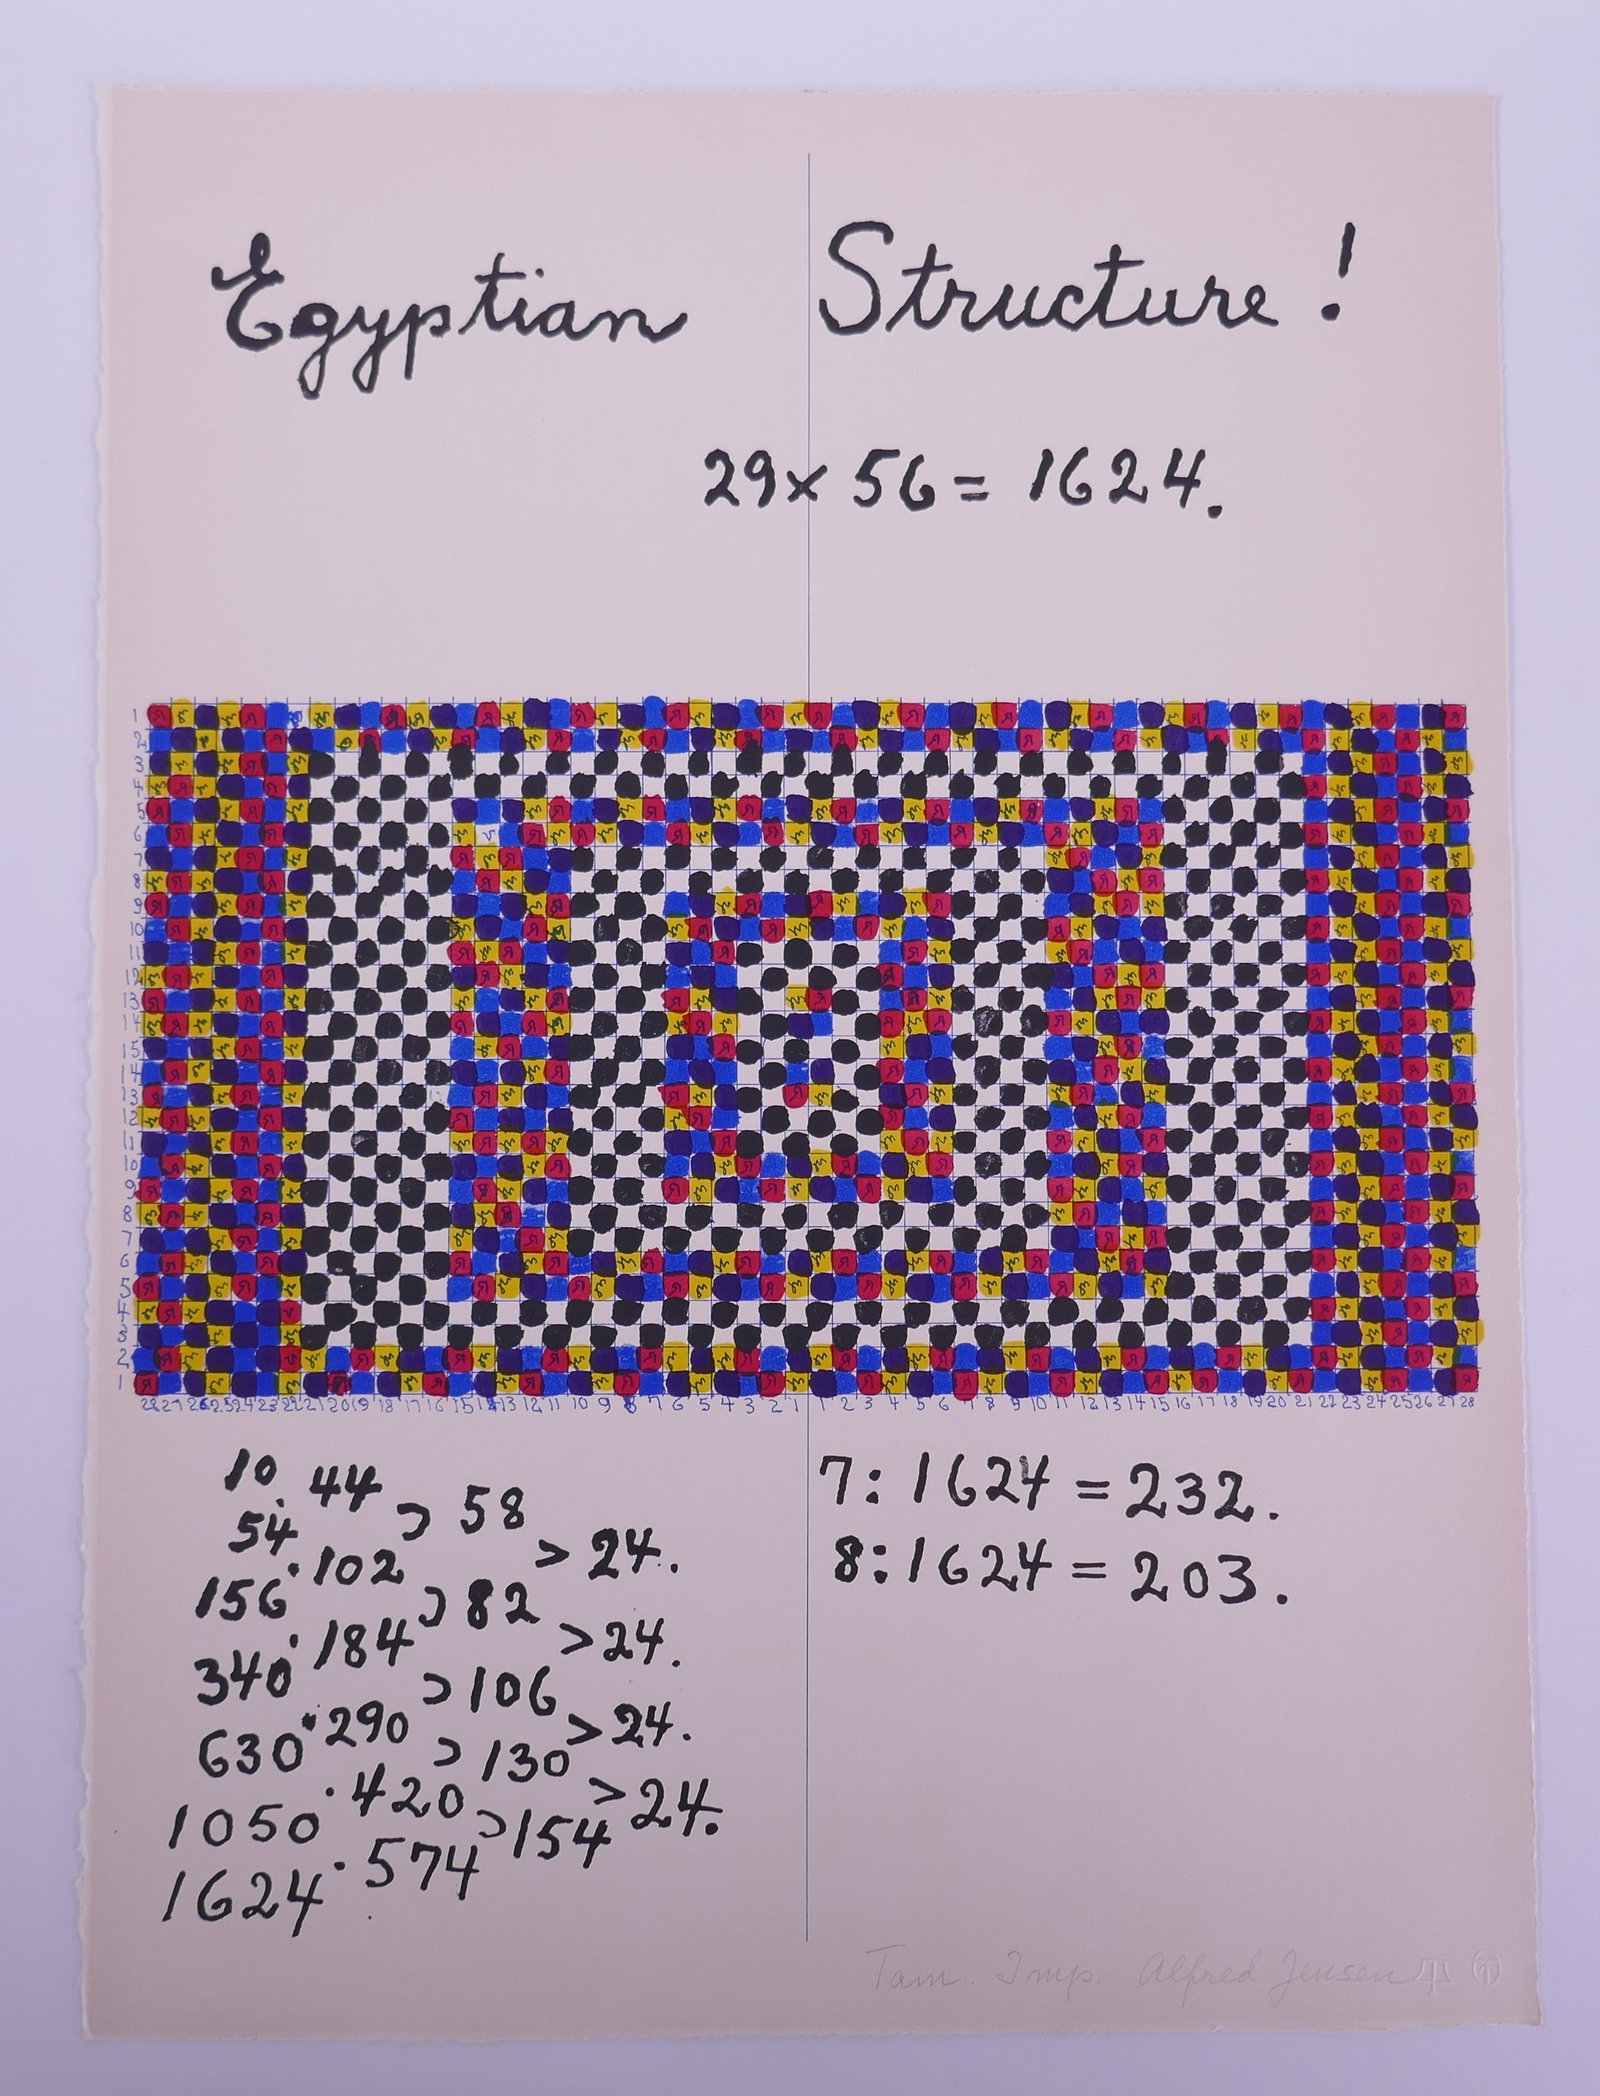 Egyptian Structure!
29 x 56 = 1624.
1
2
3
4
5
6
7
8
9
10
11
12
13
14
15
14
13
12
11
10
9
8
7
6
5
4
3
2
1
28 27 26 25 24 23 22 21 20 19 18 17 16 15 14 13 12 11 10 9 8 7 6 5 4 3 2 1 1 2 3 4 5 6 7 8 9 10 11 12 13 14 15 16 17 18 19 20 21 22 23 24 25 26 27 28
10
44
54 > 58
102 > 24.
156 > 82
184 > 24.
340 > 106
290 > 24.
630 > 130
420 > 24.
1050 > 154
574
1624
7: 1624 = 232.
8: 1624 = 203.
Tam. Imp. Alfred Jensen